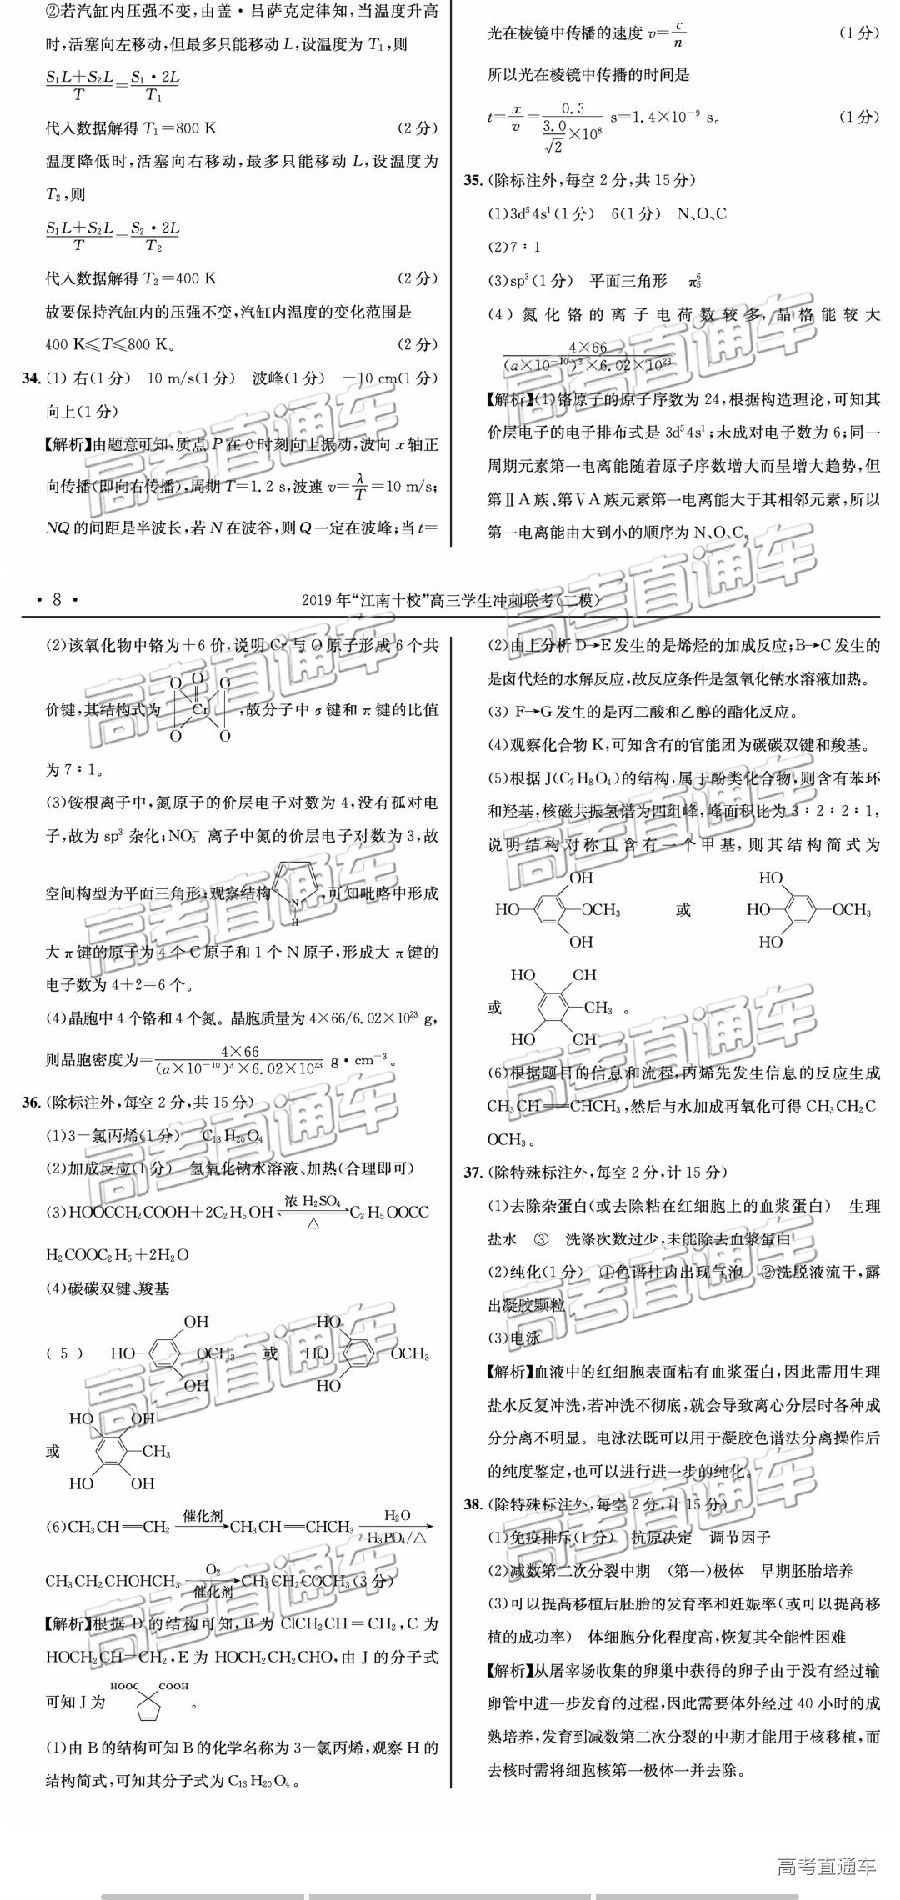 ②若汽缸内压强不变,由盖·吕萨克定律知,当温度升高
时,活塞向左移动,但最多只能移动 L,设温度为 T₁,则
(S₁L+S₂L)/T=(S₁·2L)/T₁
代入数据解得 T₁=800 K (2分)
温度降低时,活塞向右移动,最多只能移动 L,设温度为
T₂,则
(S₁L+S₂L)/T=(S₂·2L)/T₂
代入数据解得 T₂=400 K (2分)
故要保持汽缸内的压强不变,汽缸内温度的变化范围是
400 K≤T≤800 K。 (2分)
34. (1) 右(1分) 10 m/s(1分) 波峰(1分) —10 cm(1分)
向上(1分)
【解析】由题意可知,质点 P 在 0 时刻向上振动,波向 x 轴正
向传播(即向右传播),周期 T=1.2 s,波速 v=λ/T=10 m/s;
NQ 的间距是半波长,若 N 在波谷,则 Q 一定在波峰;当 t=
光在棱镜中传播的速度 v=c/n (1分)
所以光在棱镜中传播的时间是
t=x/v=0.3/(3.0/√2×10⁸) s=1.4×10⁻⁹ s。 (1分)
35. (除标注外,每空 2 分,共 15 分)
(1)3d⁵4s¹(1分) 6(1分) N、O、C
(2)7∶1
(3)sp³(1分) 平面三角形 π₅⁶
(4)氮化铬的离子电荷数较多,晶格能较大
4×66/((a×10⁻¹⁰)³×6.02×10²³)
【解析】(1)铬原子的原子序数为 24,根据构造理论,可知其
价层电子的电子排布式是 3d⁵4s¹;未成对电子数为 6;同一
周期元素第一电离能随着原子序数增大而呈增大趋势,但
第ⅡA族、第ⅤA族元素第一电离能大于其相邻元素,所以
第一电离能由大到小的顺序为 N、O、C。
· 8 · 2019 年“江南十校”高三学生冲刺联考(二模)
(2)该氧化物中铬为+6 价,说明 Cr 与 O 原子形成 6 个共
价键,其结构式为 O O O Cr O O ,故分子中 σ 键和 π 键的比值
为 7∶1。
(3)铵根离子中,氮原子的价层电子对数为 4,没有孤对电
子,故为 sp³ 杂化;NO₃⁻ 离子中氮的价层电子对数为 3,故
空间构型为平面三角形;观察结构 N H ,可知吡咯中形成
大 π 键的原子为 4 个 C 原子和 1 个 N 原子,形成大 π 键的
电子数为 4+2=6 个。
(4)晶胞中 4 个铬和 4 个氮。晶胞质量为 4×66/6.02×10²³ g,
则晶胞密度为=4×66/((a×10⁻¹⁰)³×6.02×10²³) g·cm⁻³。
36. (除标注外,每空 2 分,共 15 分)
(1)3—氯丙烯(1分) C₁₃H₂₀O₄
(2)加成反应(1分) 氢氧化钠水溶液、加热(合理即可)
(3)HOOCCH₂COOH+2C₂H₅OH 浓 H₂SO₄ ⇌ △ C₂H₅OOCC
H₂COOC₂H₅+2H₂O
(4)碳碳双键、羧基
(5) HO OH OCH₃ OH 或 HO HO HO OCH₃
或 HO OH CH₃ HO OH
(6)CH₃CH=CH₂ 催化剂→ CH₃CH=CHCH₃ H₂O H₃PO₄/△→
CH₃CH₂CHOHCH₃ O₂ 催化剂→ CH₃CH₂COCH₃(3分)
【解析】根据 D 的结构可知,B 为 ClCH₂CH=CH₂,C 为
HOCH₂CH=CH₂,E 为 HOCH₂CH₂CHO,由 J 的分子式
可知 J 为 HOOC COOH 。
(1)由 B 的结构可知 B 的化学名称为 3—氯丙烯,观察 H 的
结构简式,可知其分子式为 C₁₃H₂₀O₄。
(2)由上分析 D→E 发生的是烯烃的加成反应;B→C 发生的
是卤代烃的水解反应,故反应条件是氢氧化钠水溶液加热。
(3) F→G 发生的是丙二酸和乙醇的酯化反应。
(4)观察化合物 K,可知含有的官能团为碳碳双键和羧基。
(5)根据 J(C₇H₈O₄)的结构,属于酚类化合物,则含有苯环
和羟基,核磁共振氢谱为四组峰,峰面积比为 3∶2∶2∶1,
说明结构对称且含有一个甲基,则其结构简式为
HO OH OCH₃ OH 或 HO HO HO OCH₃
或 HO OH CH₃ HO OH 。
(6)根据题目的信息和流程,丙烯先发生信息的反应生成
CH₃CH=CHCH₃,然后与水加成再氧化可得 CH₃CH₂C
OCH₃。
37. (除特殊标注外,每空 2 分,计 15 分)
(1)去除杂蛋白(或去除粘在红细胞上的血浆蛋白) 生理
盐水 ③ 洗涤次数过少,未能除去血浆蛋白
(2)纯化(1分) ①色谱柱内出现气泡 ②洗脱液流干,露
出凝胶颗粒
(3)电泳
【解析】血液中的红细胞表面粘有血浆蛋白,因此需用生理
盐水反复冲洗,若冲洗不彻底,就会导致离心分层时各种成
分分离不明显。电泳法既可以用于凝胶色谱法分离操作后
的纯度鉴定,也可以进行进一步的纯化。
38. (除特殊标注外,每空 2 分,计 15 分)
(1)免疫排斥(1分) 抗原决定 调节因子
(2)减数第二次分裂中期 (第一)极体 早期胚胎培养
(3)可以提高移植后胚胎的发育率和妊娠率(或可以提高移
植的成功率) 体细胞分化程度高,恢复其全能性困难
【解析】从屠宰场收集的卵巢中获得的卵子由于没有经过输
卵管中进一步发育的过程,因此需要体外经过 40 小时的成
熟培养,发育到减数第二次分裂的中期才能用于核移植,而
去核时需将细胞核第一极体一并去除。
高考直通车